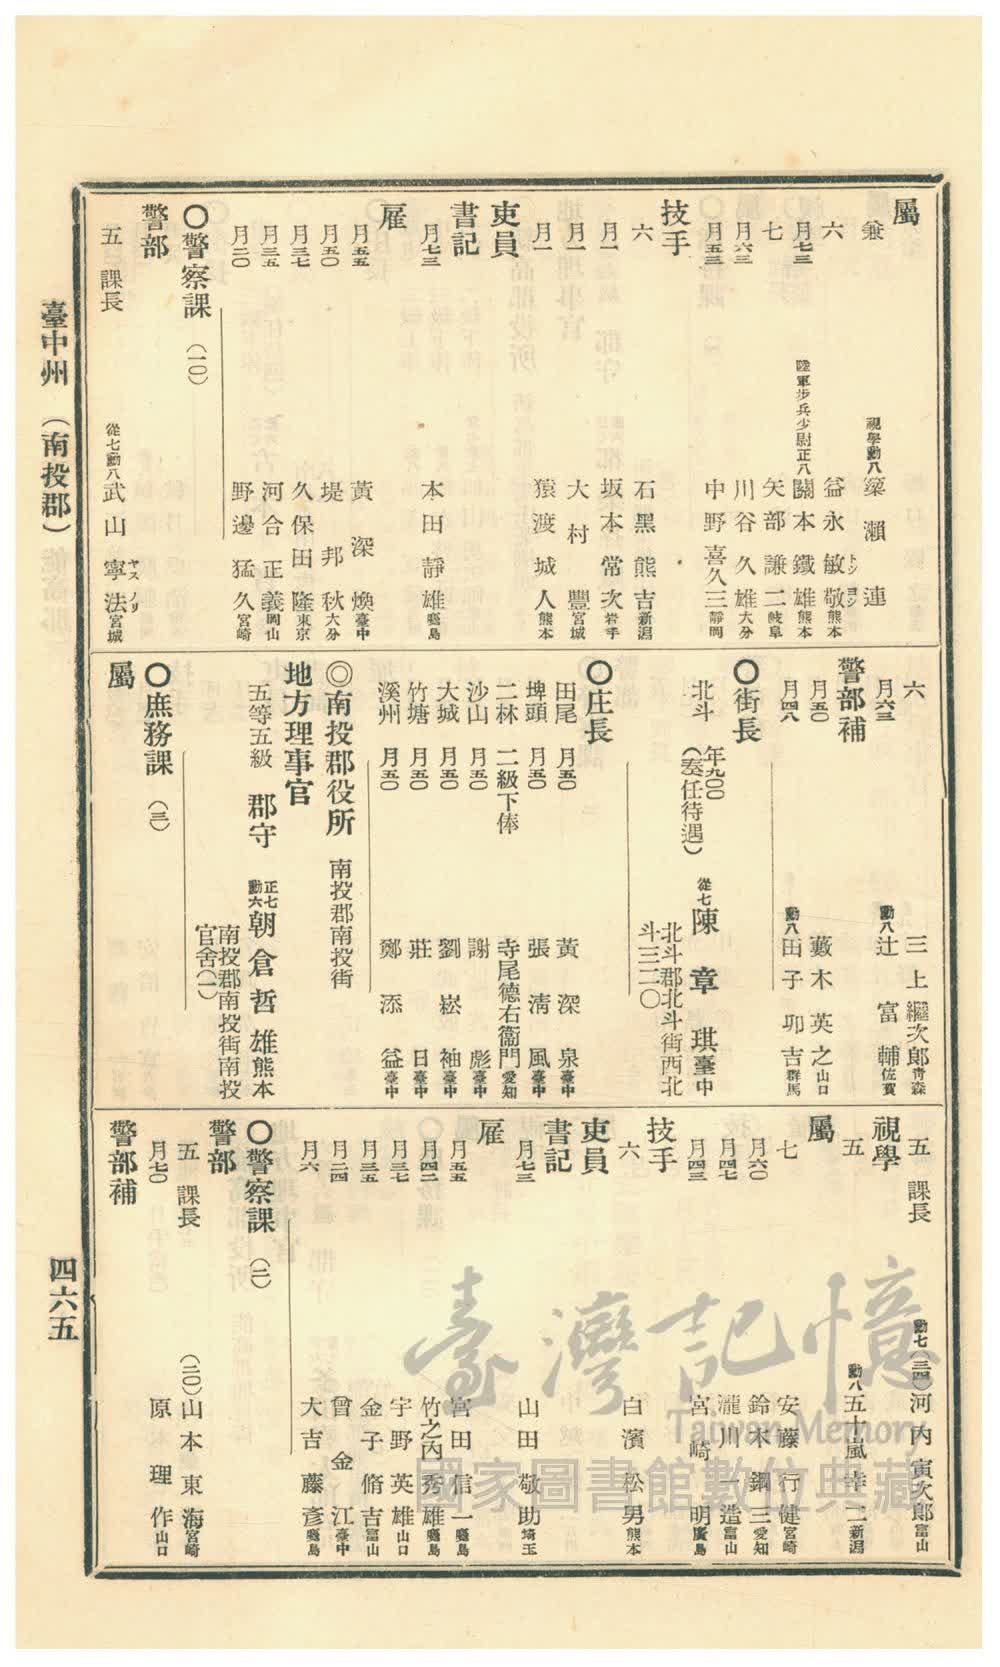 屬
兼 視學勳八 簗瀨連
六 益永敏敬 トシ ヨシ 熊本
月七三 陸軍步兵少尉正八 關本鐵雄 熊本
七 矢部謙二 岐阜
月六三 川谷久雄 大分
月五三 中野喜久三 靜岡
技手
六 石黑熊吉 新潟
月一 坂本常次 岩手
月一 大村豐 宮城
月一 猿渡城人 熊本
吏員
書記
月七三 本田靜雄
雇
月五五 黃深煥 臺中
月五〇 堤邦秋 大分
月三七 久保田隆 東京
月三五 河合正義 岡山
月二〇 野邊猛久 宮崎
〇警察課 (一〇)
警部
五 課長 從七勳八 武山寧法 ヤス ノリ 宮城
六 三上繼次郎 青森
月六三 勳八 辻富輔 佐賀
警部補
月五〇 藪木英之 山口
月四八 勳八 田子卯吉 群馬
〇街長
北斗 年九〇〇 (奏任待遇) 從七 陳章琪 臺中
北斗郡北斗街西北
斗三二〇
〇庄長
田尾 月五〇 黃深泉 臺中
埤頭 月五〇 張淸風 臺中
二林 二級下俸 寺尾德右衞門 愛知
沙山 月五〇 謝彪 臺中
大城 月五〇 劉崧袖 臺中
竹塘 月五〇 莊日 臺中
溪州 月五〇 鄭添益 臺中
◎南投郡役所 南投郡南投街
地方理事官
五等五級 郡守 正七勳六 朝倉哲雄 熊本
南投郡南投街南投
官舍(一)
〇庶務課 (三)
屬
五 課長 勳七 (三四) 河內寅次郎 富山
視學
五 勳八 五十嵐幸二 新潟
屬
七 安藤行健 宮崎
月六〇 鈴木鋼三 愛知
月四七 瀧川一造 富山
月四三 宮崎明 廣島
技手
六 白濱松男 熊本
吏員
書記
月七三 山田敬助 埼玉
雇
月五五 宮田信一
月四二 竹之內秀雄
月三七 宇野英雄 山口
月三五 金子脩吉 富山
月二四 曾金江 臺中
月六 大吉藤彥
〇警察課 (二)
警部
五 課長 (二〇) 山本東海 宮崎
月七〇 原理作 山口
警部補
臺中州 (南投郡)
四六五
臺灣記憶
Taiwan Memory
國家圖書館數位典藏